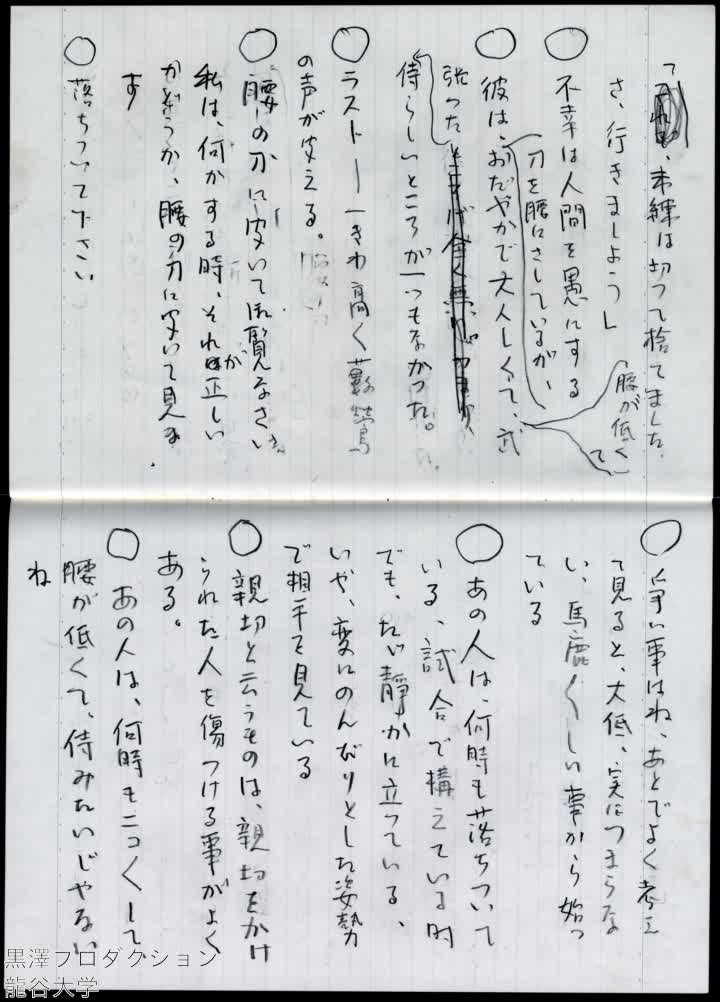 て、未練は切つて捨てました
さ、行きましょう」
○不幸は人間を愚にする
刀を腰にさしているが、
腰が低くて
○彼は、おだやかで大人しくて、武
張った
侍らしいところが一つもなかった。
○ラスト ― 一きわ高く藪鶯
の声が聞える。
○腰の刀に聞いて御覧なさい
私は、何かする時、それが正しい
かどうか、腰の刀に聞いて見ま
す
○落ちついて下さい
○争い事はね、あとでよく考え
て見ると、大低、実につまらな
い、馬鹿〱しい事から始つ
ている
○あの人は、何時も落ちついて
いる、試合で構えている時
でも、たゞ静かに立っている、
いや、変にのんびりとした姿勢
で相手を見ている
○親切と云うものは、親切をかけ
られた人を傷つける事がよく
ある。
○あの人は、何時もニコ〱して、
腰が低くて、侍みたいじやない
ね
黒澤プロダクション
龍谷大学